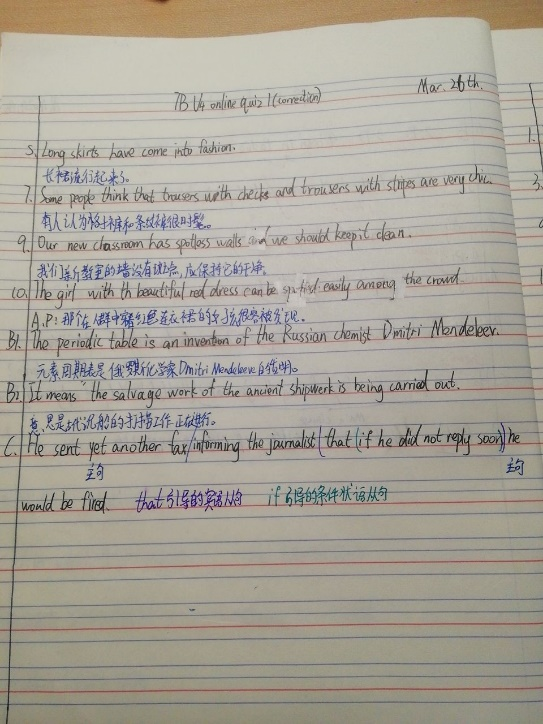 7B U4 online quiz 1 (correction)
Mar. 26th.
5. Long skirts have come into fashion.
长裙流行起来了。
7. Some people think that trousers with checks and trousers with stripes are very chic.
有人认为格子裤和条纹裤很时髦。
9. Our new classroom has spotless walls and we should keep it clean.
我们新教室的墙没有斑点，应保持它的干净。
10. The girl with th beautiful red dress can be spotted easily among the crowd.
A.P: 那个在人群中穿红色连衣裙的女孩很容易被发现。
B1. The periodic table is an invention of the Russian chemist Dmitri Mendeleev.
元素周期表是俄罗斯化学家Dmitri Mendeleeve的发明。
B2. It means "the salvage work of the ancient shipwerk is being carried out.
意思是古代沉船的打捞工作正在进行。
C. He sent yet another fax/informing the journalist (that (if he did not reply soon) he
主句
主句
would be fired. that引导的宾语从句 if引导的条件状语从句
1.
3.